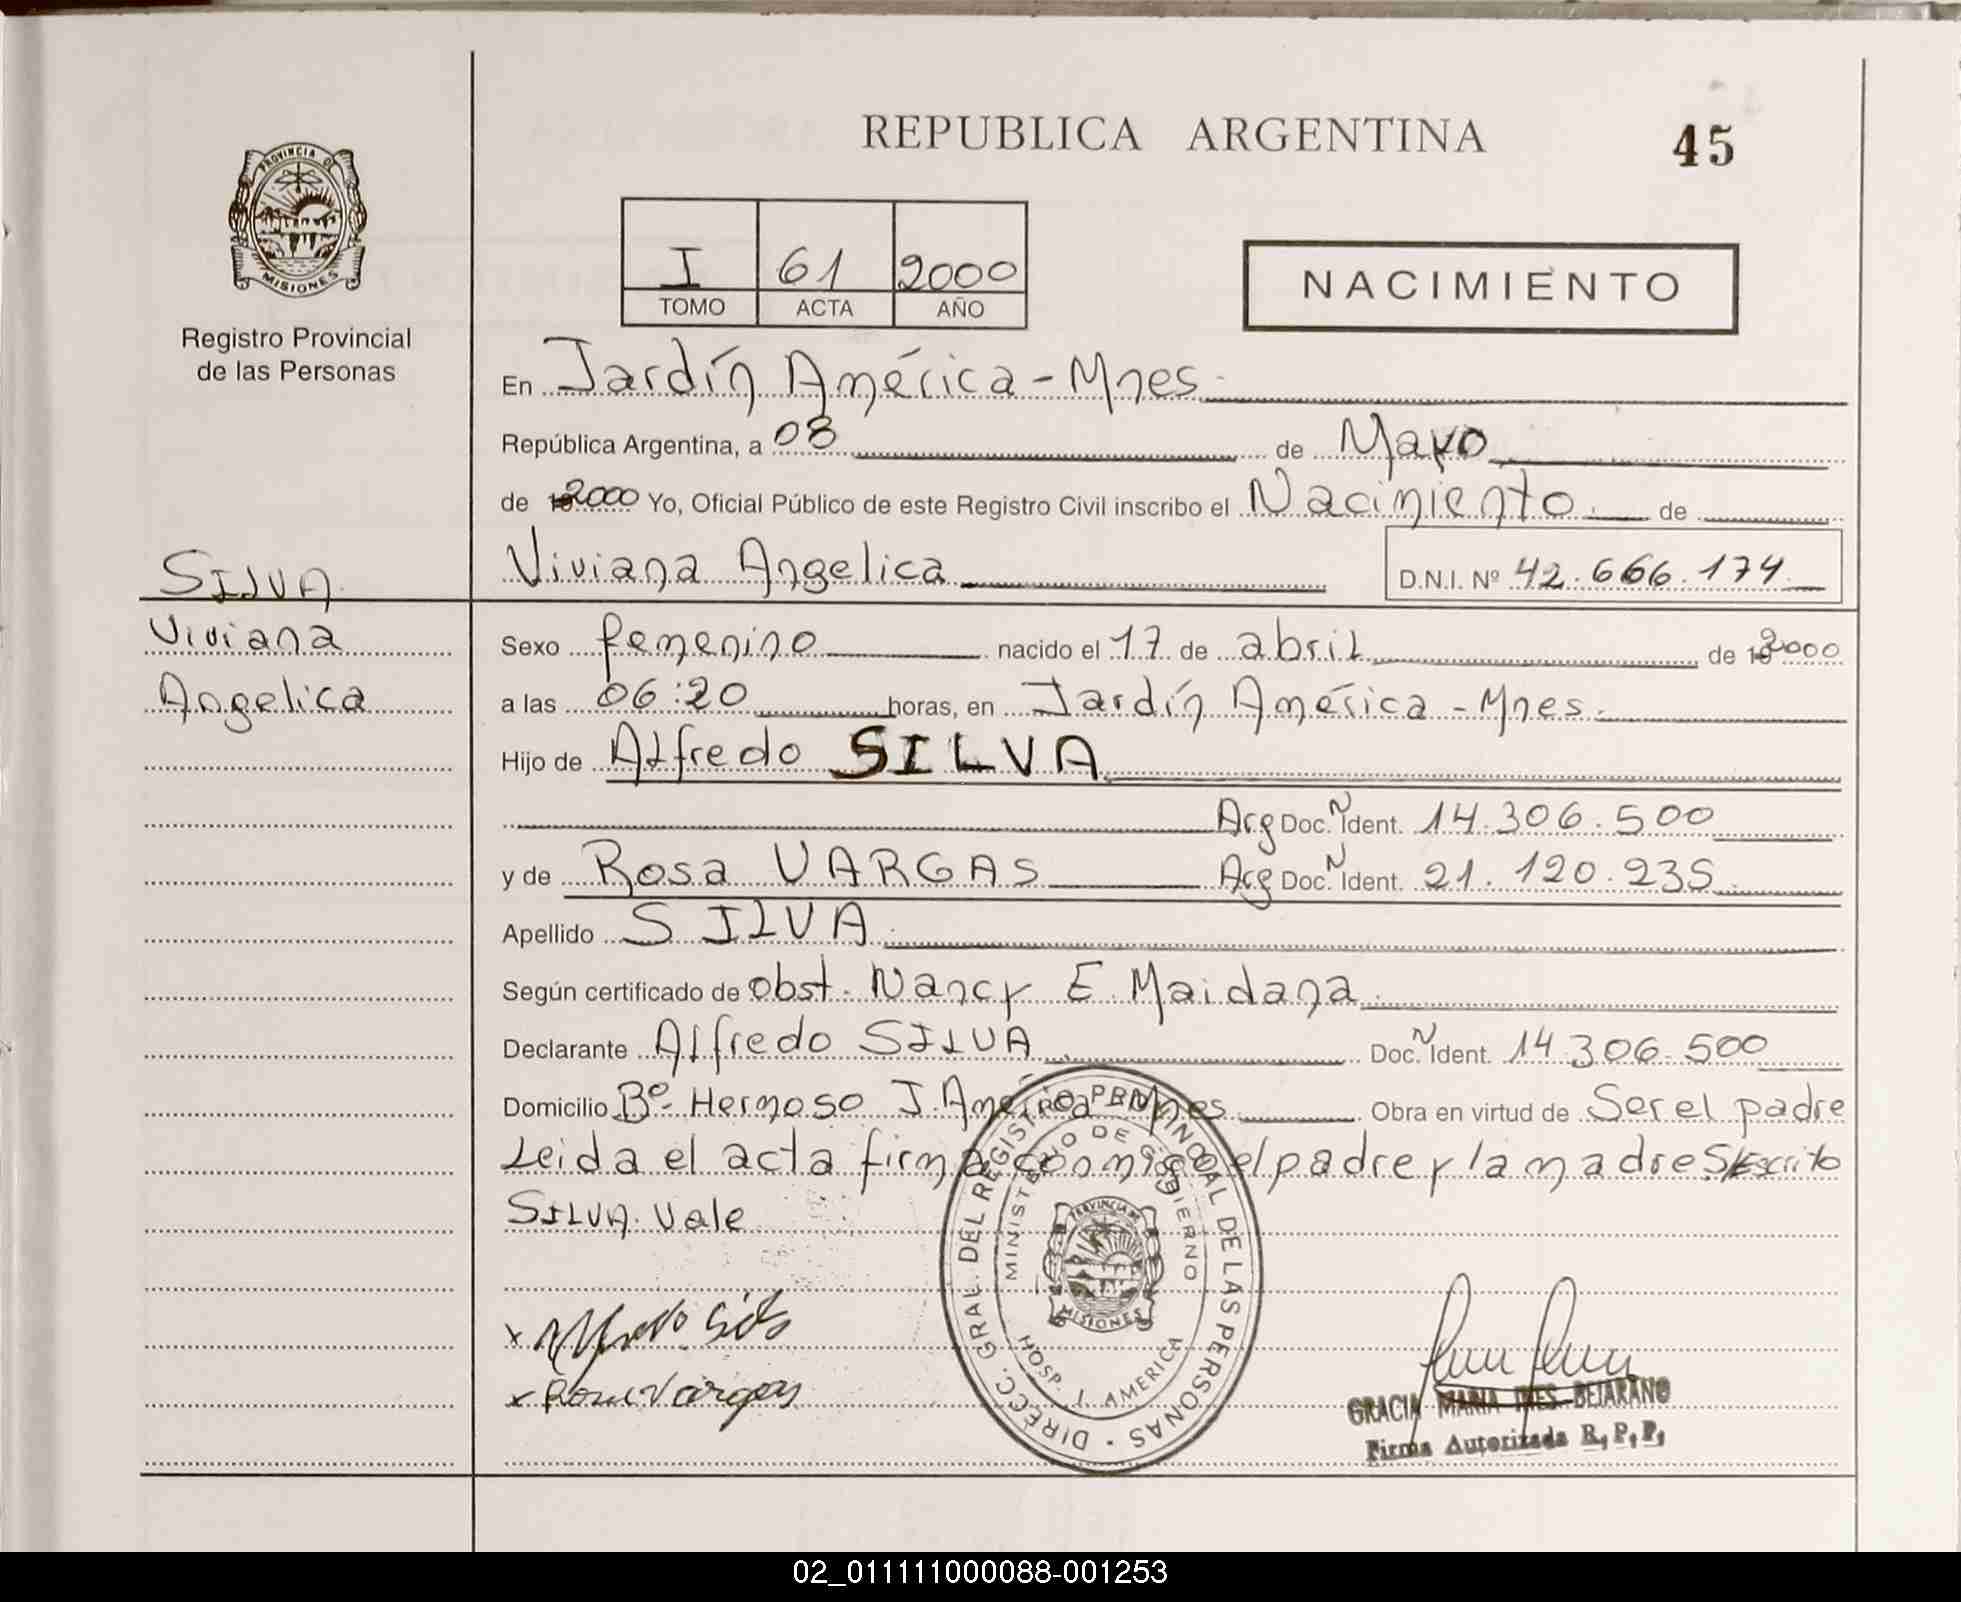 REPUBLICA ARGENTINA
45
PROVINCIA DE
MISIONES
Registro Provincial
de las Personas
I 61 2000
TOMO ACTA AÑO
NACIMIENTO
En Jardín América - Mnes.
República Argentina, a 08 de Mayo
de 2000 Yo, Oficial Público de este Registro Civil inscribo el Nacimiento de
Viviana Angelica D.N.I. Nº 42.666.174
SILVA
Viviana
Angelica
Sexo femenino nacido el 17 de abril de 2000
a las 06:20 horas, en Jardín América - Mnes.
Hijo de Alfredo SILVA
Arg Doc. N Ident. 14.306.500
y de Rosa VARGAS Arg Doc. N Ident. 21.120.235
Apellido SILVA
Según certificado de Obst. Nancy E. Maidana
Declarante Alfredo SILVA Doc. N Ident. 14.306.500
Domicilio Bº Hermoso J. América Mnes Obra en virtud de Ser el padre
Leida el acta firma conmigo el padre y la madre S/Escrito
SILVA. Vale
DIRECC. GRAL. DEL REGISTRO PROVINCIAL DE LAS PERSONAS
MINISTERIO DE GOBIERNO
PROVINCIA DE
MISIONES
HOSP. J. AMERICA
x Alfredo
x Rosa Vargas
GRACIA MARIA INES BEJARANO
Firma Autorizada R.P.P.
02_011111000088-001253